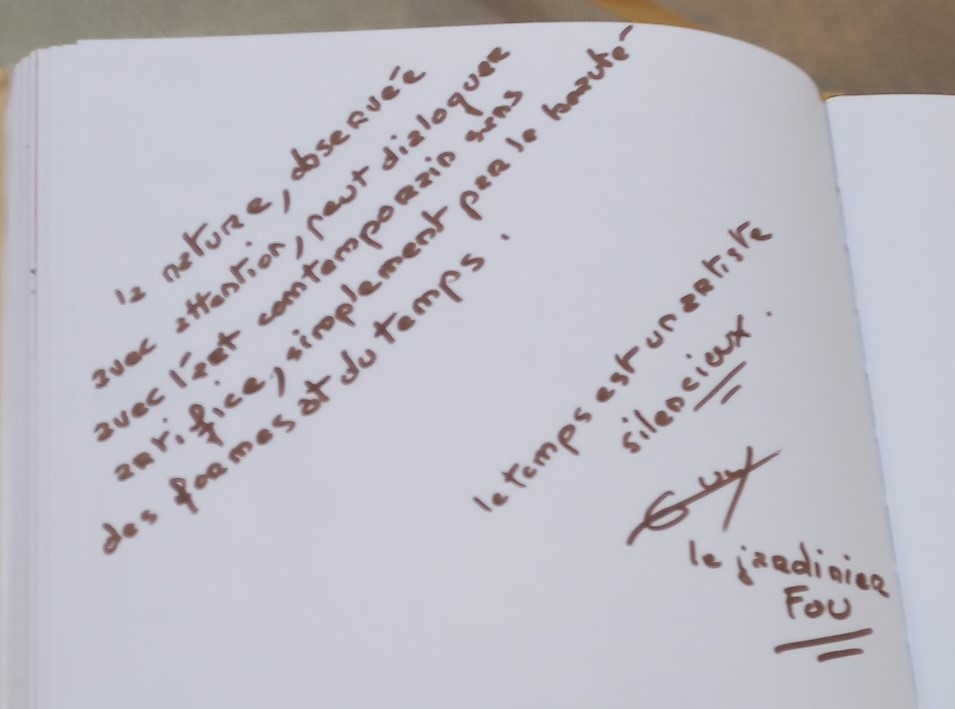 la nature, observée
avec attention, peut dialoguer
avec l'art comtemporain sans
artifice, simplement par la beauté
des formes et du temps.
le temps est un artiste
silencieux.
Guy
le jardinier
FOU